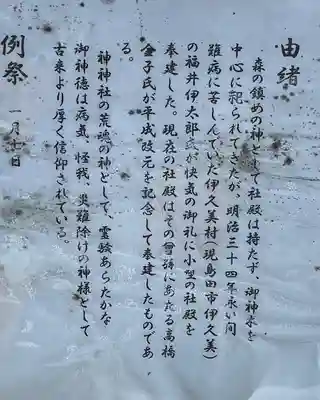 由緒
森の鎮めの神として社殿は持たず、御神木を
中心に祀られてきたが、明治三十四年永い間
難病に苦しんでいた伊久美村(現島田市伊久美)
の福井伊太郎氏が快気の御礼に小型の社殿を
奉建した。現在の社殿はその曾孫にあたる高橋
金子氏が平成改元を記念して奉建したものであ
る。
神神社の荒魂の神として、霊験あらたかな
御神徳は病気、怪我、災難除けの神様として
古来より厚く信仰されている。
例祭 一月七日